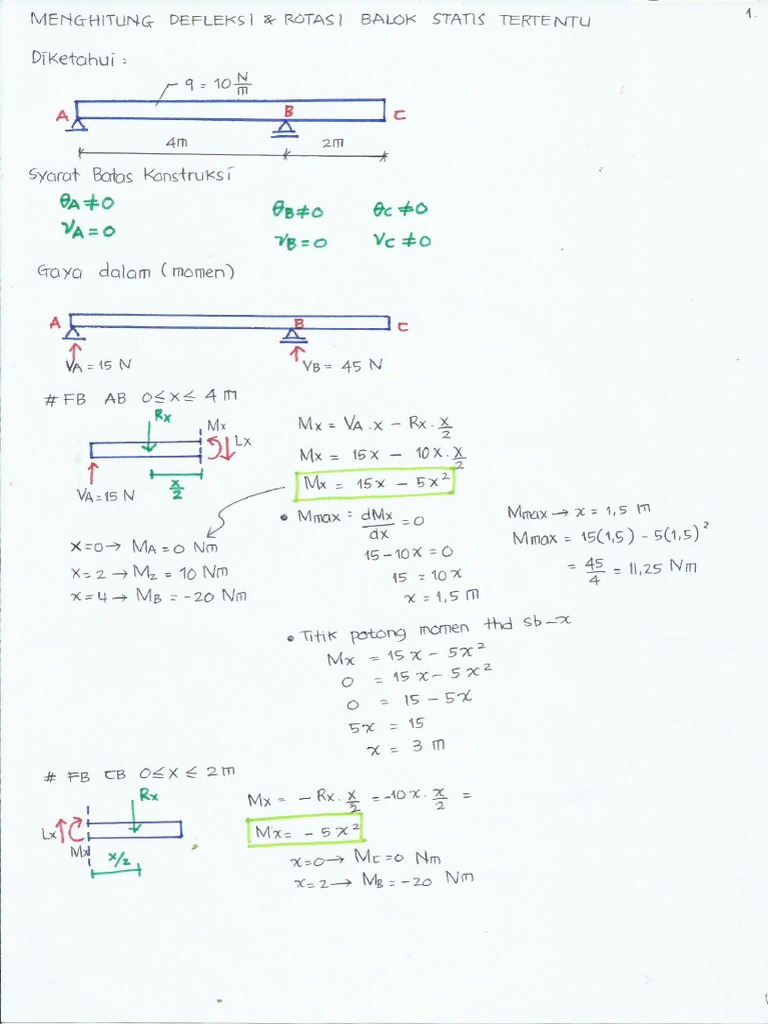 1.
MENGHITUNG DEFLEKSI & ROTASI BALOK STATIS TERTENTU
Diketahui :
q = 10 N/m
A B C
4m 2m
Syarat Batas Konstruksi
θA ≠ 0 θB ≠ 0 θC ≠ 0
νA = 0 νB = 0 νC ≠ 0
Gaya dalam (momen)
A B C
VA = 15 N VB = 45 N
# FB AB 0 ≤ x ≤ 4 m
Rx Mx Lx
x/2
VA = 15 N
Mx = VA . x – Rx . x/2
Mx = 15x – 10x . x/2
Mx = 15x – 5x²
x = 0 → MA = 0 Nm
x = 2 → M2 = 10 Nm
x = 4 → MB = -20 Nm
• Mmax = dMx/dx = 0
15 – 10x = 0
15 = 10x
x = 1,5 m
Mmax → x = 1,5 m
Mmax = 15(1,5) – 5(1,5)²
= 45/4 = 11,25 Nm
• Titik potong momen thd sb-x
Mx = 15x – 5x²
0 = 15x – 5x²
0 = 15 – 5x
5x = 15
x = 3 m
# FB CB 0 ≤ x ≤ 2m
Rx
Lx
Mx
x/2
Mx = – Rx . x/2 = -10x . x/2 =
Mx = – 5x²
x = 0 → MC = 0 Nm
x = 2 → MB = -20 Nm